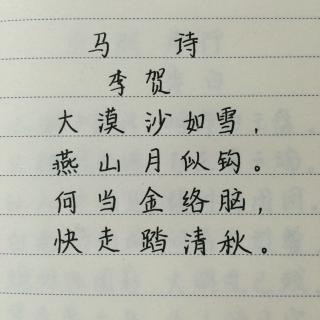 马 诗
李贺
大漠沙如雪，
燕山月似钩。
何当金络脑，
快走踏清秋。